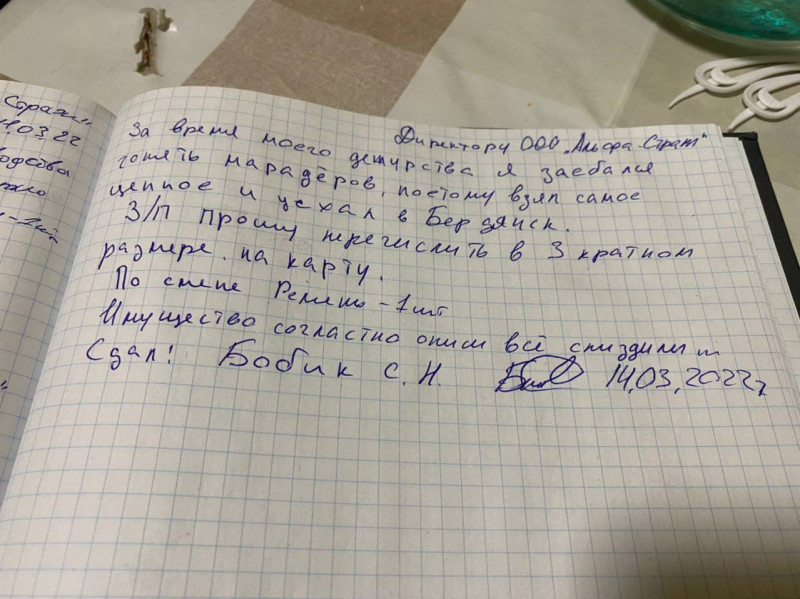 Страж"
03 22
Директору ООО „Альфа-Страж"
За время моего дежурства я заебался
гонять марадёров, поэтому взял самое
ценное и уехал в Бердянск.
З/П прошу перечислить в 3 кратном
размере. на карту.
По смене Ремень - 1 шт
Имущество согластно описи всё спиздили ...
Сдал! Бобик С. Н. 14.03.2022г